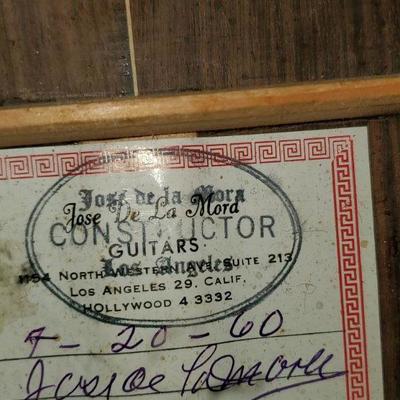 José de la Mora
Jose De La Mord
CONSTRUCTOR
GUITARS
Los Angeles
1154 NORTH WESTERN AVE. SUITE 213
LOS ANGELES 29, CALIF.
HOLLYWOOD 4 3332
4-20-60